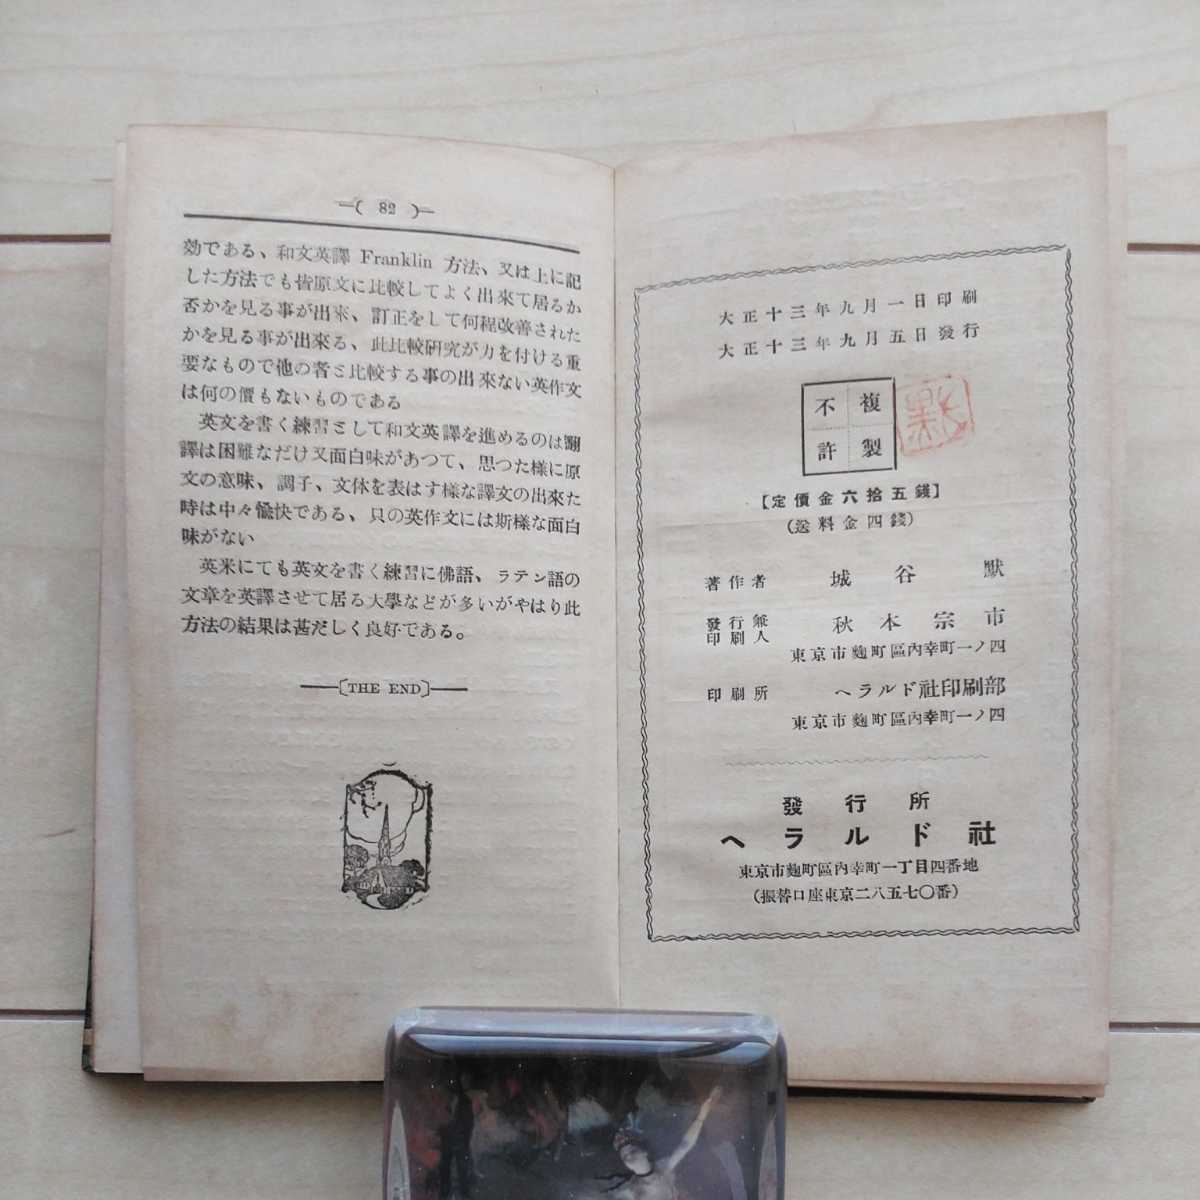 ( 82 )
効である、和文英譯 Franklin 方法、又は上に記
した方法でも皆原文に比較してよく出來て居るか
否かを見る事が出來、訂正をして何程改善された
かを見る事が出來る、此比較硏究が力を付ける重
要なもので他の者と比較する事の出來ない英作文
は何の價もないものである
英文を書く練習として和文英譯を進めるのは飜
譯は困難なだけ又面白味があつて、思つた樣に原
文の意味、調子、文体を表はす樣な譯文の出來た
時は中々愉快である、只の英作文には斯樣な面白
味がない
英米にても英文を書く練習に佛語、ラテン語の
文章を英譯させて居る大學などが多いがやはり此
方法の結果は甚だしく良好である。
[THE END]
大正十三年九月一日印刷
大正十三年九月五日發行
不許複製
【定價金六拾五錢】
(送料金四錢)
著作者 城谷默
發行兼印刷人 秋本宗市
東京市麴町區內幸町一ノ四
印刷所 ヘラルド社印刷部
東京市麴町區內幸町一ノ四
發行所
ヘラルド社
東京市麴町區內幸町一丁目四番地
(振替口座東京二八五七〇番)